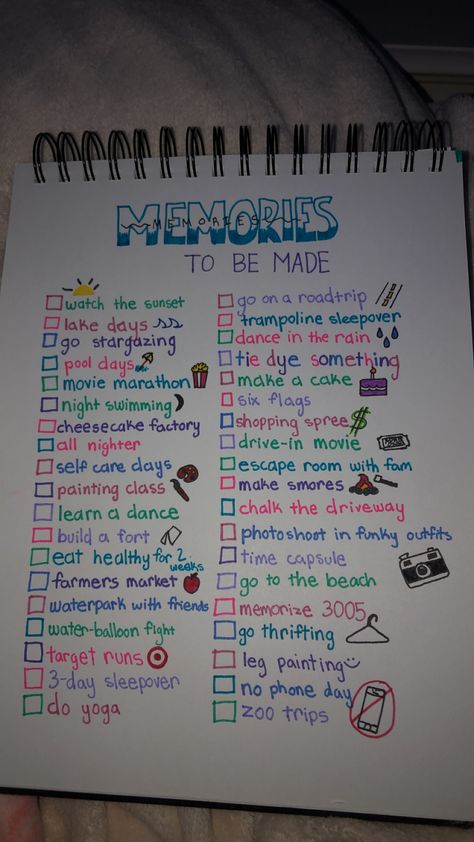 MEMORIES
MEMORIES
TO BE MADE
watch the sunset
lake days
go stargazing
pool days
movie marathon
night swimming
cheesecake factory
all nighter
self care days
painting class
learn a dance
build a fort
eat healthy for 2 weeks
farmers market
waterpark with friends
water-balloon fight
target runs
3-day sleepover
do yoga
go on a roadtrip
trampoline sleepover
dance in the rain
tie dye something
make a cake
six flags
shopping spree $
drive-in movie
escape room with fam
make smores
chalk the driveway
photoshoot in funky outfits
time capsule
go to the beach
memorize 3005
go thrifting
leg painting
no phone day
zoo trips